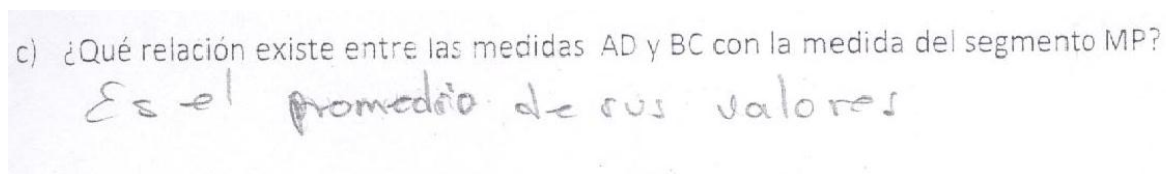 c) ¿Qué relación existe entre las medidas AD y BC con la medida del segmento MP?
Es el promedio de sus valores